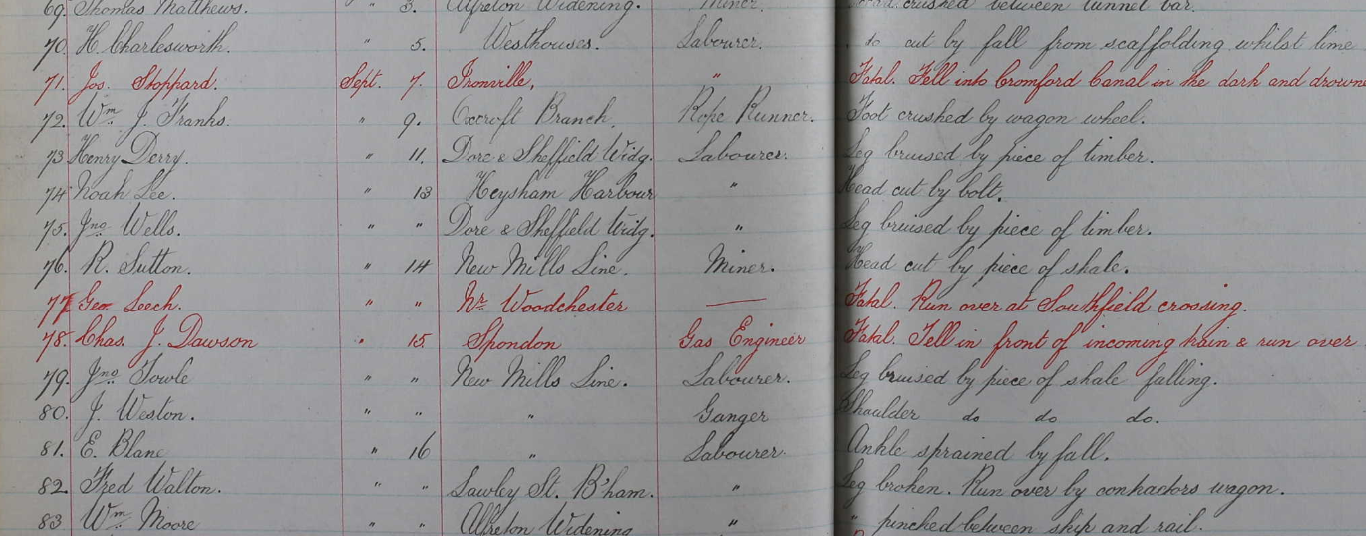 69. Thomas Matthews. " 3. Alfreton Widening. Miner. Head crushed between tunnel bar.
70. H. Charlesworth. " 5. Westhouses. Labourer. do cut by fall from scaffolding whilst lime
71. Jos. Stoppard. Sept. 7. Ironville. " Fatal. Fell into Cromford Canal in the dark and drowne
72. Wm J. Franks. " 9. Oxcroft Branch. Rope Runner. Foot crushed by wagon wheel.
73 Henry Derry. " 11. Dore & Sheffield Widg. Labourer. Leg bruised by piece of timber.
74 Noah Lee. " 13 Heysham Harbour " Head cut by bolt.
75. Jno Wells. " " Dore & Sheffield Widg. " Leg bruised by piece of timber.
76. R. Sutton. " 14 New Mills Line. Miner. Head cut by piece of shale.
77 Geo. Leech. " " Nr Woodchester — Fatal. Run over at Southfield crossing.
78. Chas. J. Dawson " 15. Spondon Gas Engineer Fatal. Fell in front of incoming train & run over
79. Jno Towle " " New Mills Line. Labourer. Leg bruised by piece of shale falling.
80. J. Weston. " " " Ganger Shoulder do do do.
81. E. Blane " 16 " Labourer. Ankle sprained by fall.
82. Fred Walton. " " Lawley St. B'ham. " Leg broken. Run over by contractors wagon.
83 Wm Moore " " Alfreton Widening " " pinched between skip and rail.